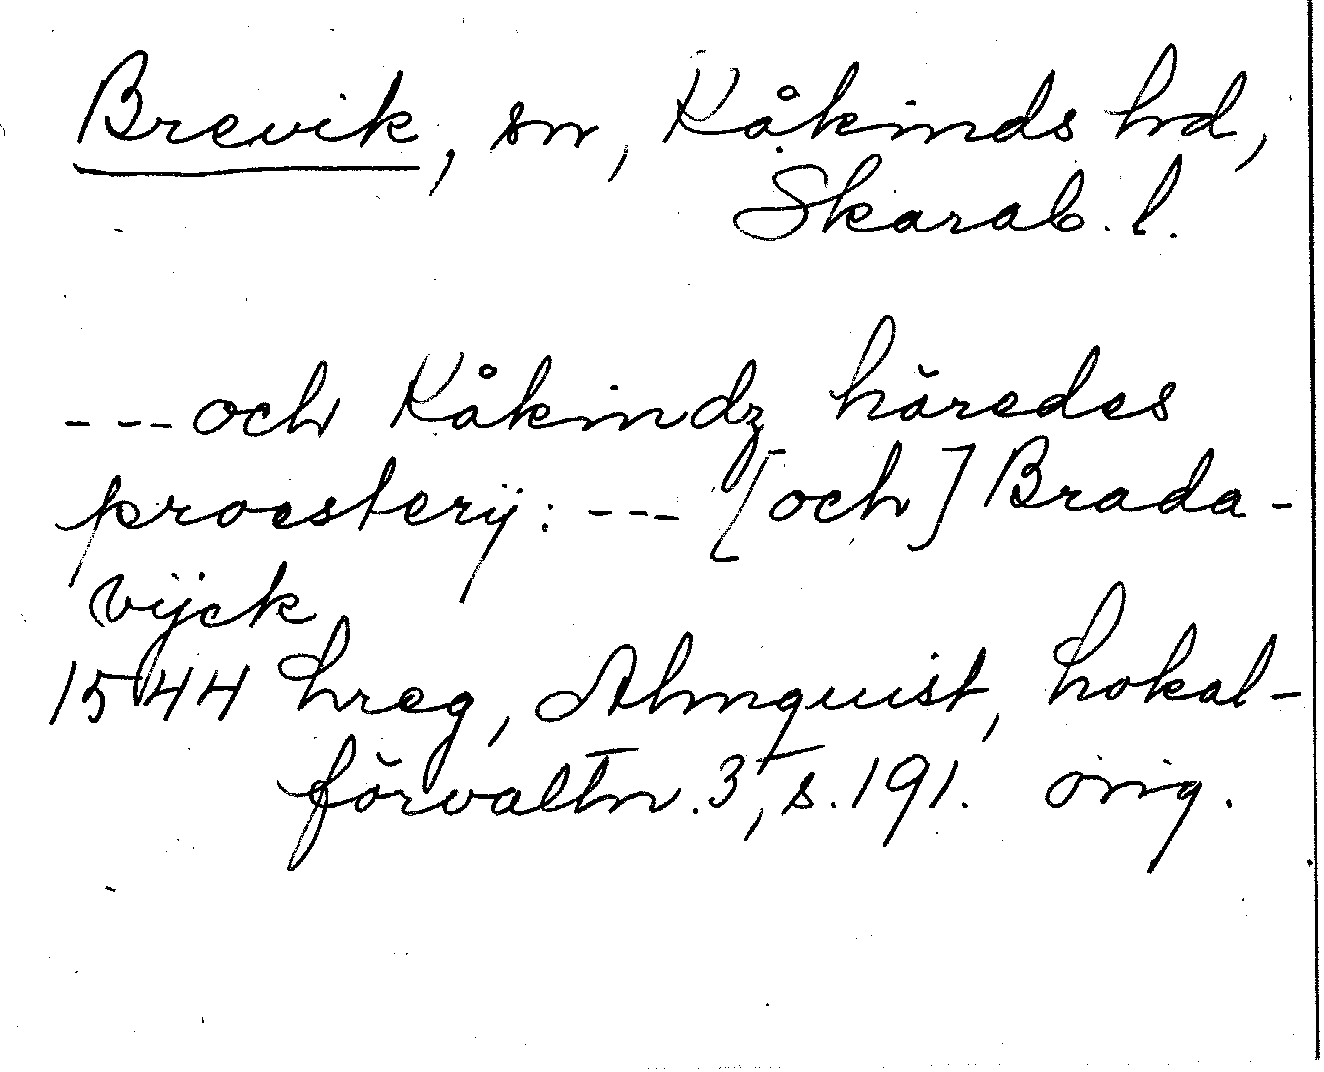 Brevik, sn, Kåkinds hd,
Skarab. l.
--- och Kåkindz häredes
proestery: --- [och] Brada-
vijck
1544 hreg, Almquist, Lokal-
förvaltn. 3, s. 191. orig.